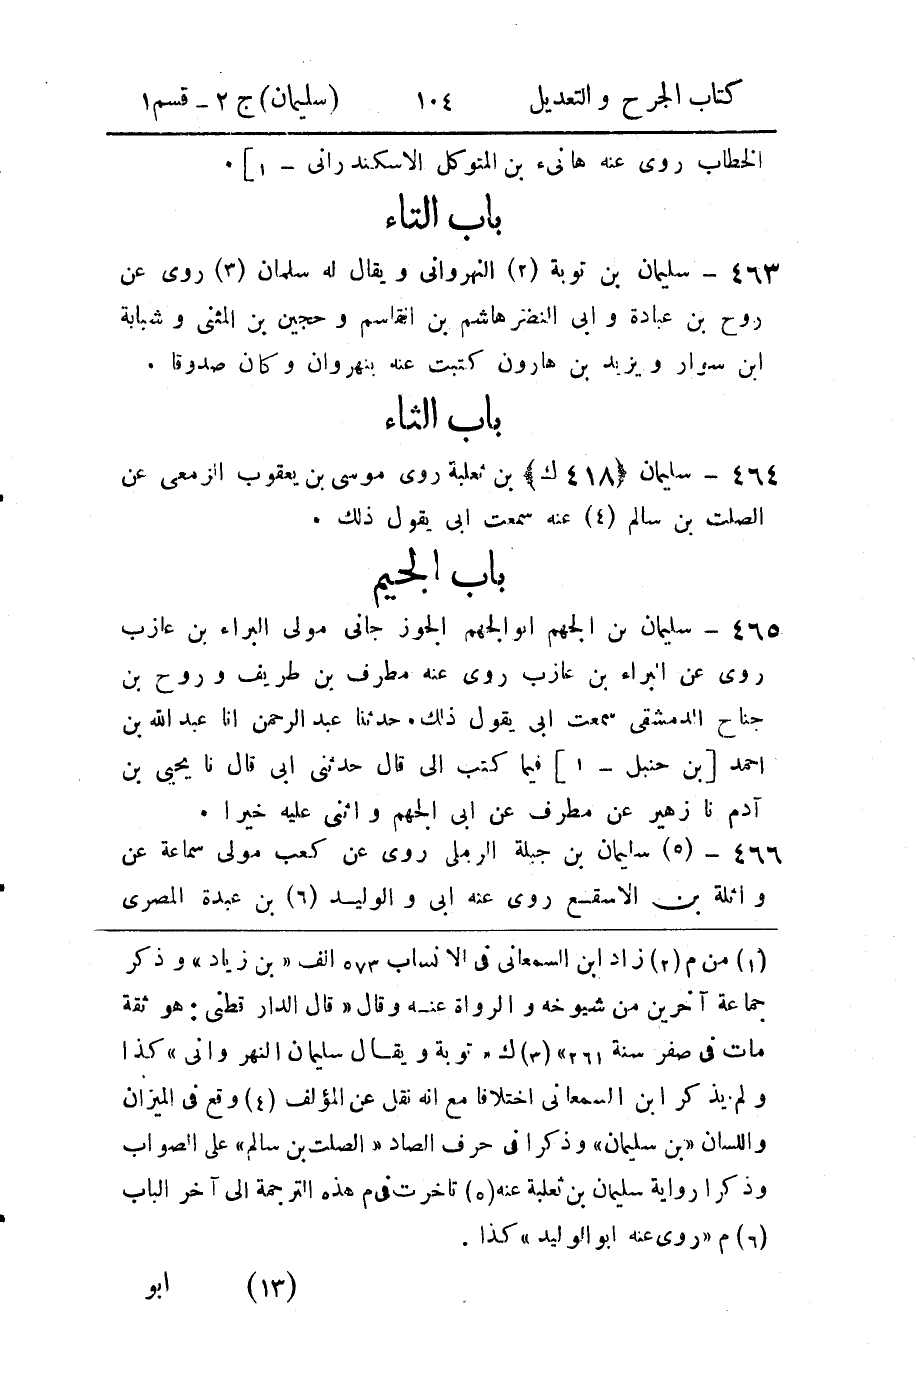 كتاب الجرح والتعديل ١٠٤ (سليمان) ج ٢ - قسم ١
الخطاب روى عنه هانىء بن المتوكل الاسكندرانى - ١] .
باب التاء
٤٦٣ - سليمان بن توبة (٢) النهروانى ويقال له سلمان (٣) روى عن
روح بن عبادة وابى النضر هاشم بن القاسم وحجين بن المثنى وشبابة
ابن سوار ويزيد بن هارون كتبت عنه بنهروان وكان صدوقا .
باب الثاء
٤٦٤ - سليمان ﴿٤١٨ ك﴾ بن ثعلبة روى موسى بن يعقوب الزمعى عن
الصلت بن سالم (٤) عنه سمعت ابى يقول ذلك .
باب الجيم
٤٦٥ - سليمان بن الجهم ابو الجهم الجوزجانى مولى البراء بن عازب
روى عن البراء بن عازب روى عنه مطرف بن طريف وروح بن
جناح الدمشقى سمعت ابى يقول ذلك . حدثنا عبد الرحمن انا عبد الله بن
احمد [بن حنبل - ١] فيما كتب الى قال حدثنى ابى قال نا يحيى بن
آدم نا زهير عن مطرف عن ابى الجهم واثنى عليه خيرا .
٤٦٦ - (٥) سليمان بن جبلة الرملى روى عن كعب مولى سماعة عن
واثلة بن الاسقع روى عنه ابى والوليد (٦) بن عبدة المصرى
(١) من م (٢) زاد ابن السمعانى فى الانساب ٥٧٣ الف « بن زياد » وذكر
جماعة آخرين من شيوخه والرواة عنه وقال « قال الدار قطنى : هو ثقة
مات فى صفر سنة ٢٦١» (٣) ك « توبة ويقال سليمان النهروانى » كذا
ولم يذكر ابن السمعانى اختلافا مع انه نقل عن المؤلف (٤) وقع فى الميزان
واللسان «بن سليمان» وذكرا فى حرف الصاد « الصلت بن سالم» على الصواب
وذكرا رواية سليمان بن ثعلبة عنه (٥) تاخرت فى م هذه الترجمة الى آخر الباب
(٦) م «روى عنه ابو الوليد » كذا .
(١٣) ابو